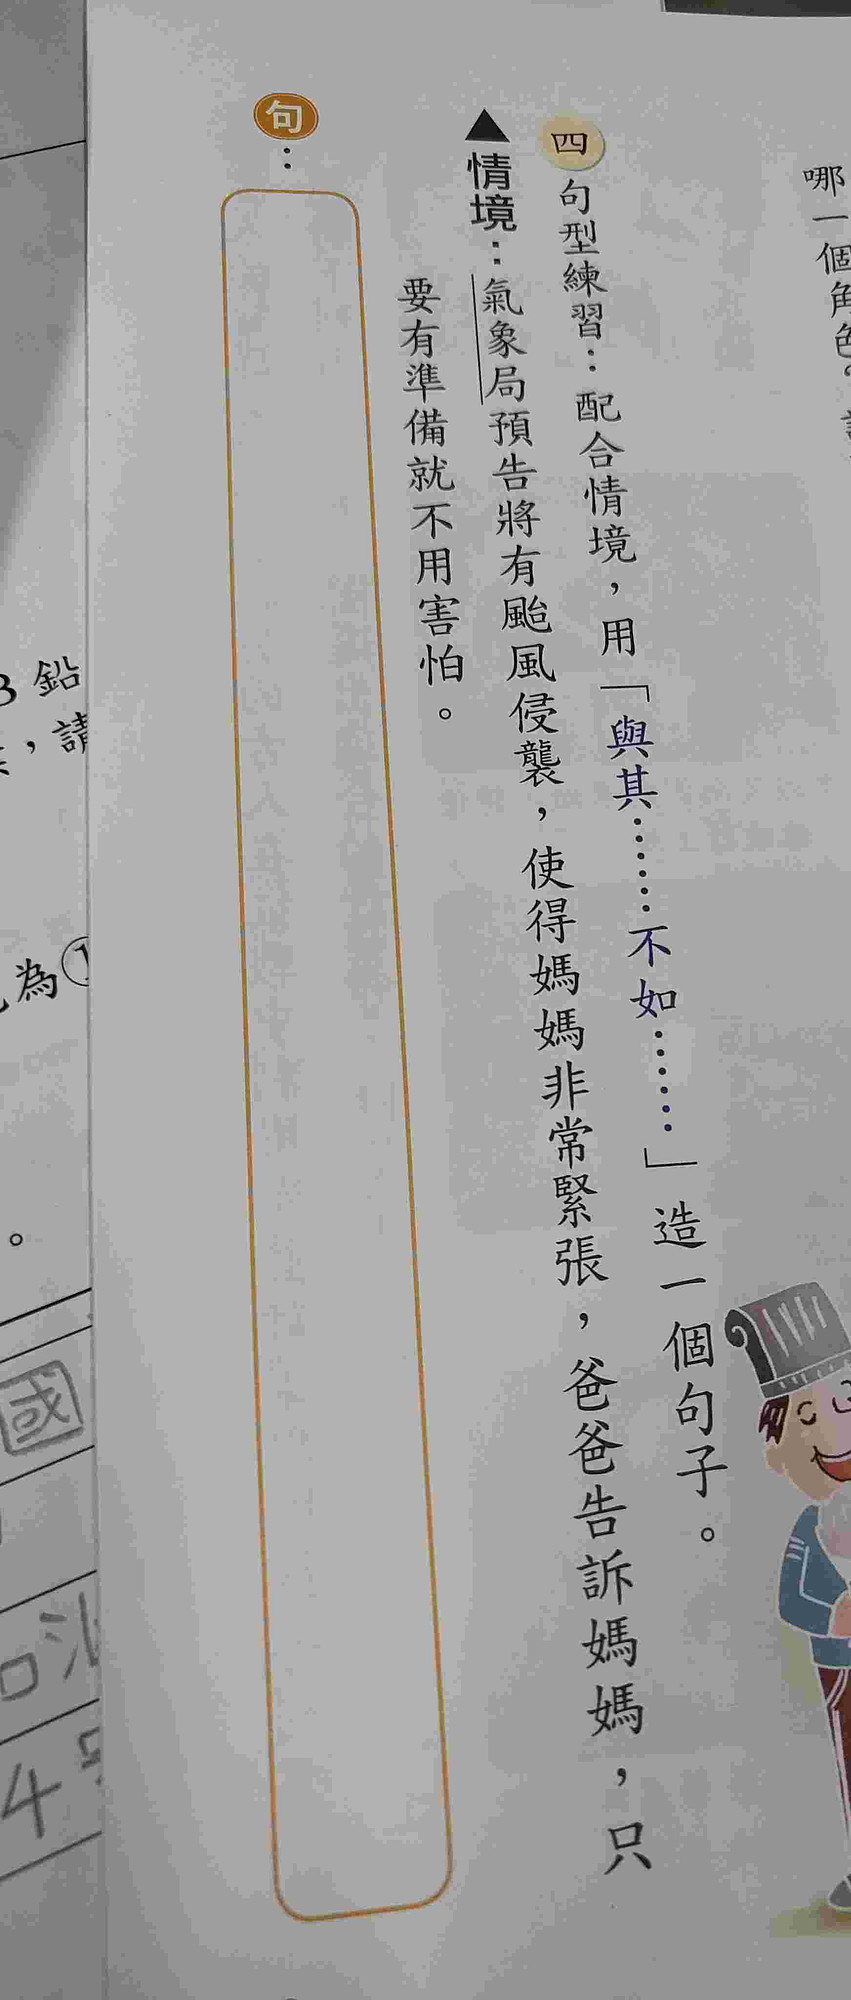 哪一個角色？
四 句型練習：配合情境，用「與其……不如……」造一個句子。
▲情境：氣象局預告將有颱風侵襲，使得媽媽非常緊張，爸爸告訴媽媽，只
要有準備就不用害怕。
句：
3 鉛
，請
為①
。
國
4